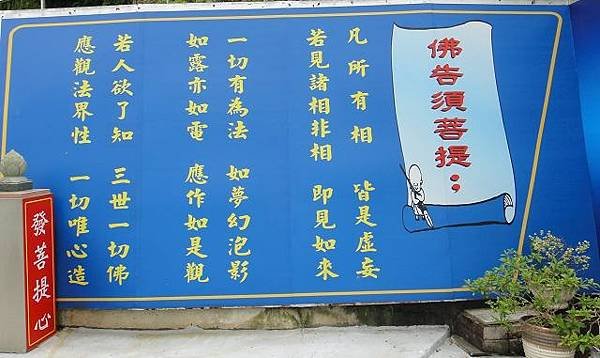 佛告須菩提；
凡所有相　皆是虛妄
若見諸相非相　即見如來
一切有為法　如夢幻泡影
如露亦如電　應作如是觀
若人欲了知　三世一切佛
應觀法界性　一切唯心造
發菩提心